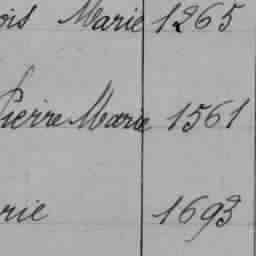 ois Marie 1265
Pierre Marie 1561
rie 1693